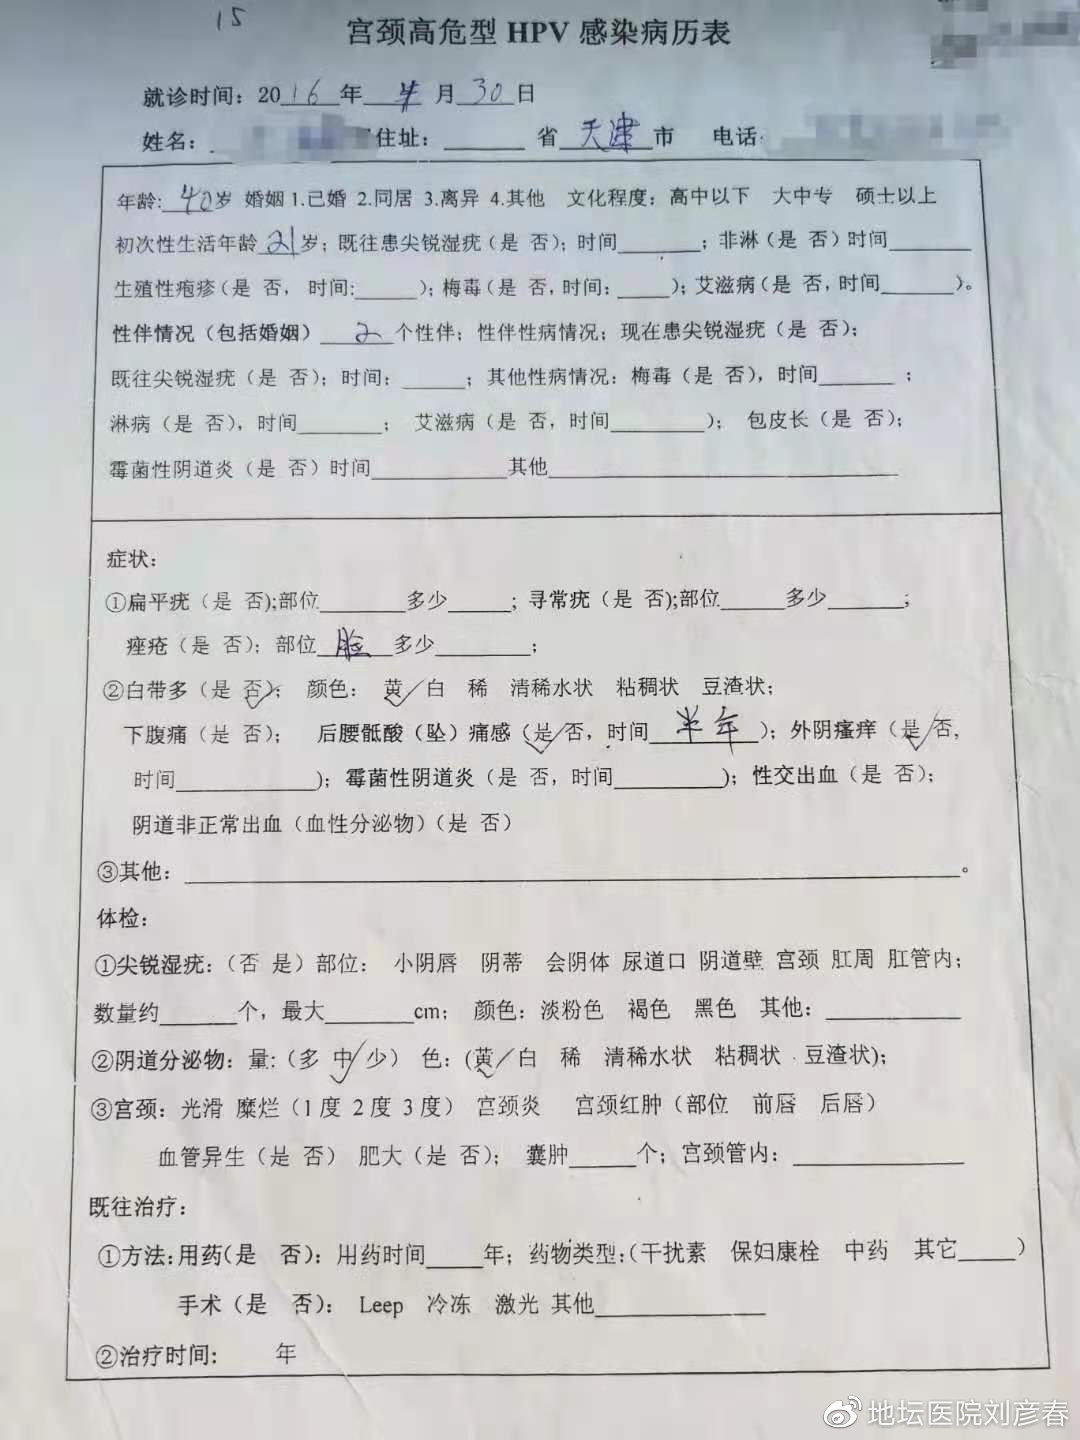 15
宫颈高危型 HPV 感染病历表
就诊时间：2016年 月30日
姓名： 住址： 省 天津 市 电话
年龄：40岁 婚姻 1.已婚 2.同居 3.离异 4.其他 文化程度：高中以下 大中专 硕士以上
初次性生活年龄 21 岁；既往患尖锐湿疣（是 否）；时间______；非淋（是 否）时间______
生殖性疱疹（是 否， 时间:_____）；梅毒（是 否，时间：____）；艾滋病（是 否，时间______）。
性伴情况（包括婚姻） 2 个性伴；性伴性病情况；现在患尖锐湿疣（是 否）；
既往尖锐湿疣（是 否）；时间：_____；其他性病情况：梅毒（是 否），时间______；
淋病（是 否），时间______； 艾滋病（是 否，时间_______）； 包皮长（是 否）；
霉菌性阴道炎（是 否）时间__________其他__________________________
症状：
①扁平疣（是 否);部位______多少_____；寻常疣（是 否);部位_____多少______；
痤疮（是 否）；部位 脸 多少_______；
②白带多（是 否✓）； 颜色： 黄✓ 白 稀 清稀水状 粘稠状 豆渣状；
下腹痛（是 否）； 后腰骶酸（坠）痛感（是✓否，时间 半年 ）；外阴瘙痒（是✓否，
时间__________）；霉菌性阴道炎（是 否，时间________）；性交出血（是 否）；
阴道非正常出血（血性分泌物）（是 否）
③其他：____________________________________________。
体检：
①尖锐湿疣：（否 是）部位： 小阴唇 阴蒂 会阴体 尿道口 阴道壁 宫颈 肛周 肛管内；
数量约______个，最大______cm； 颜色：淡粉色 褐色 黑色 其他：__________
②阴道分泌物：量:（多 中✓少） 色：(黄✓白 稀 清稀水状 粘稠状 豆渣状)；
③宫颈：光滑 糜烂（1度 2度 3度） 宫颈炎 宫颈红肿（部位 前唇 后唇）
血管异生（是 否） 肥大（是 否）； 囊肿_____个；宫颈管内：____________
既往治疗：
①方法：用药（是 否）：用药时间____年；药物类型：（干扰素 保妇康栓 中药 其它____）
手术（是 否）： Leep 冷冻 激光 其他____________
②治疗时间： 年
地坛医院刘彦春